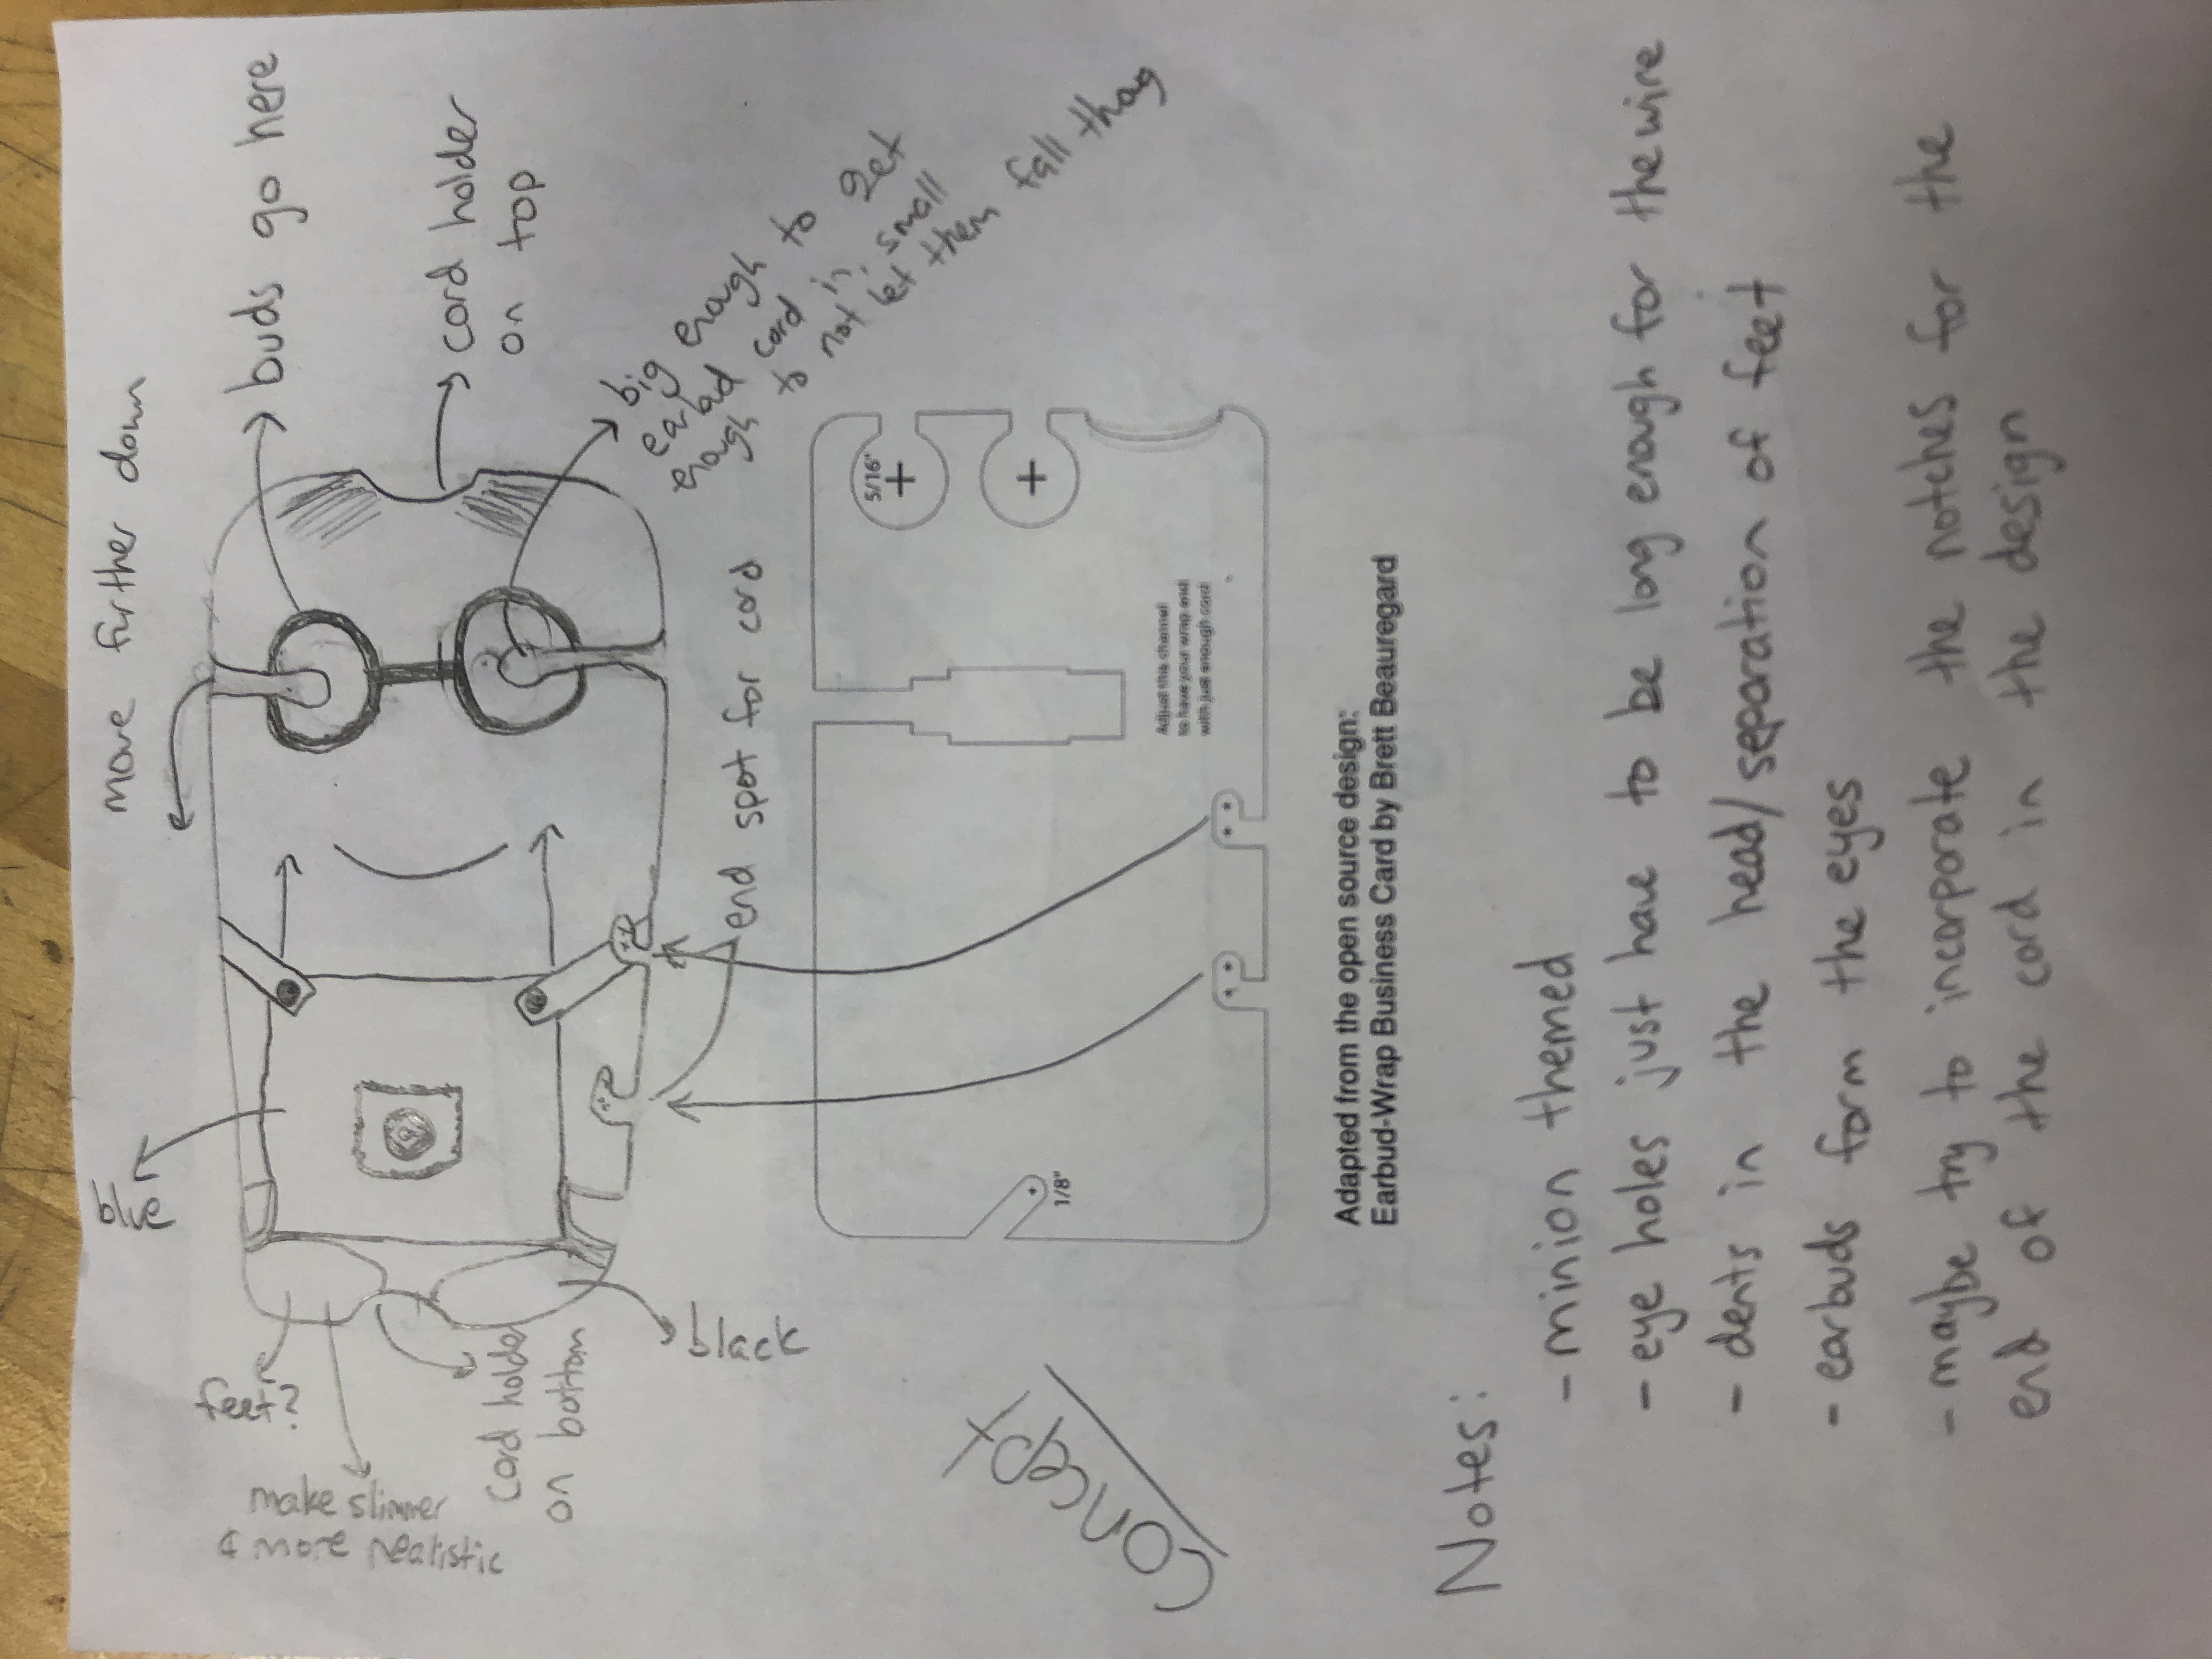 blue
move further down
feet?
make slimmer
& more realistic
buds go here
cord holder
on top
cord holder
on bottom
black
end spot for cord
big enough to get
earbud cord in, small
enough to not let them fall throug
5/16"
1/8"
Adjust this channel
to have your wrap end
with just enough cord
Concept
Adapted from the open source design:
Earbud-Wrap Business Card by Brett Beauregard
Notes:
- minion themed
- eye holes just have to be long enough for the wire
- dents in the head/separation of feet
- earbuds form the eyes
- maybe try to incorporate the notches for the
end of the cord in the design